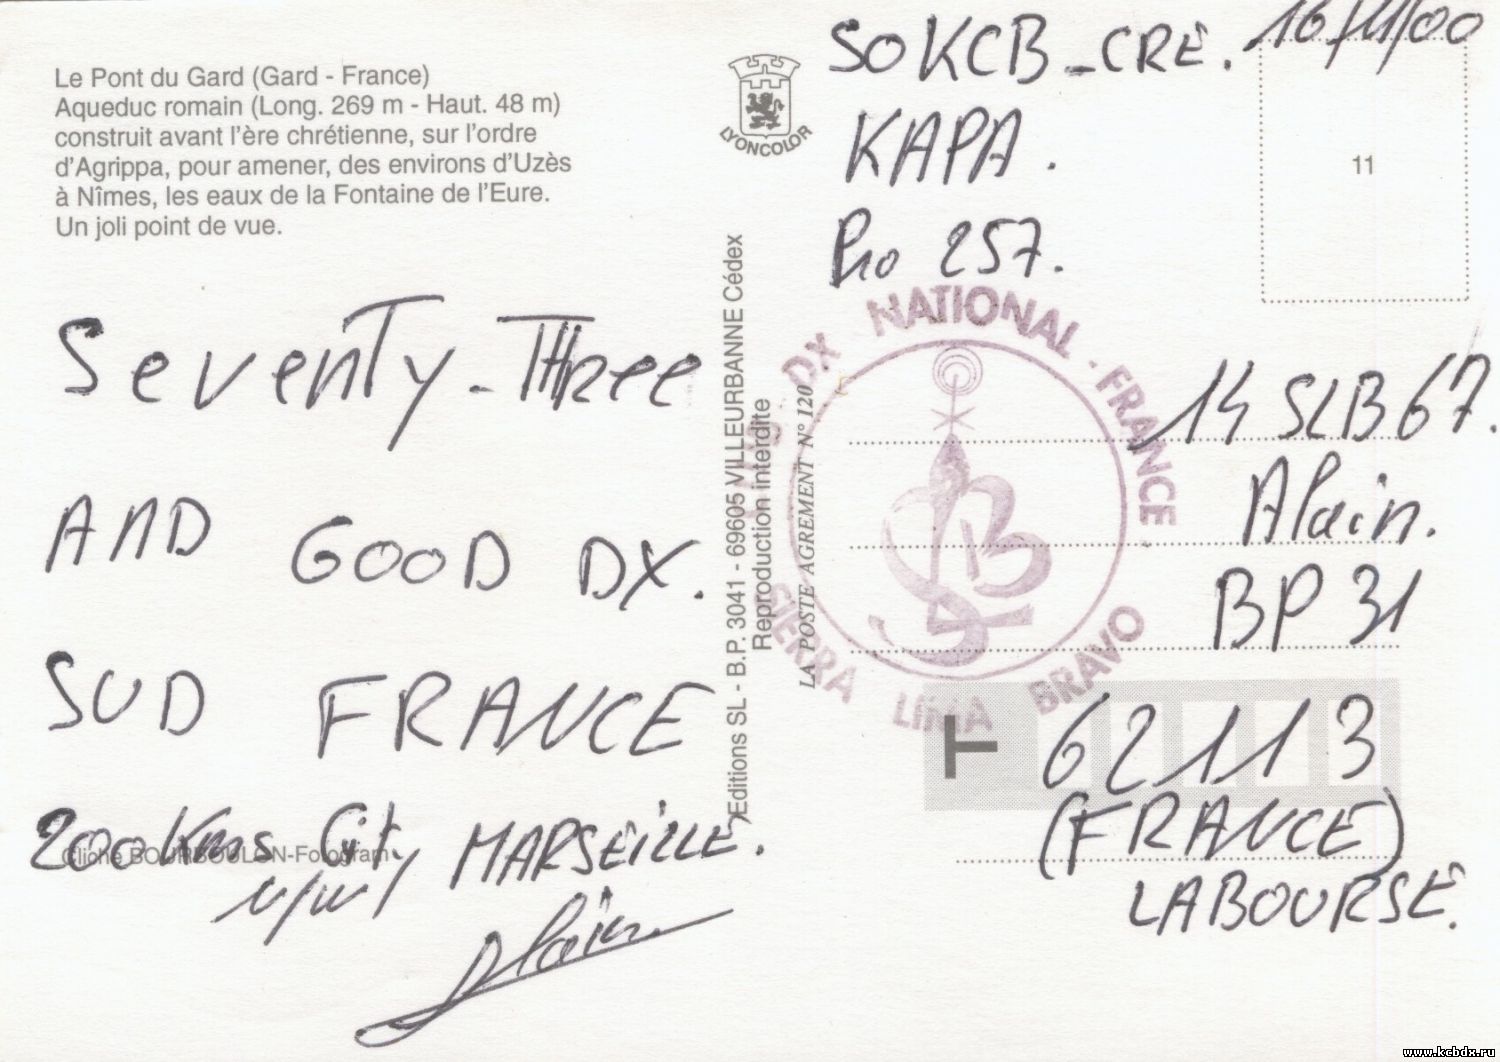 Le Pont du Gard (Gard - France)
Aqueduc romain (Long. 269 m - Haut. 48 m)
construit avant l'ère chrétienne, sur l'ordre
d'Agrippa, pour amener, des environs d'Uzès
à Nîmes, les eaux de la Fontaine de l'Eure.
Un joli point de vue.
Seventy-Three
AND GOOD DX.
SUD FRANCE
200 Kms City MARSEILLE.
Alain
Cliché BOURBOULON-Fotogram
LYONCOLOR
Editions SL - B.P. 3041 - 69605 VILLEURBANNE Cédex
Reproduction interdite
LA POSTE AGREMENT N° 120
SOKCB_CRE. 16/11/00
KAPA.
Pro 257.
11
DX NATIONAL - FRANCE
SIERRA LIMA BRAVO
SLB
14 SLB 67.
Alain.
BP 31
T 62113
(FRANCE)
LABOURSE.
www.kcbdx.ru